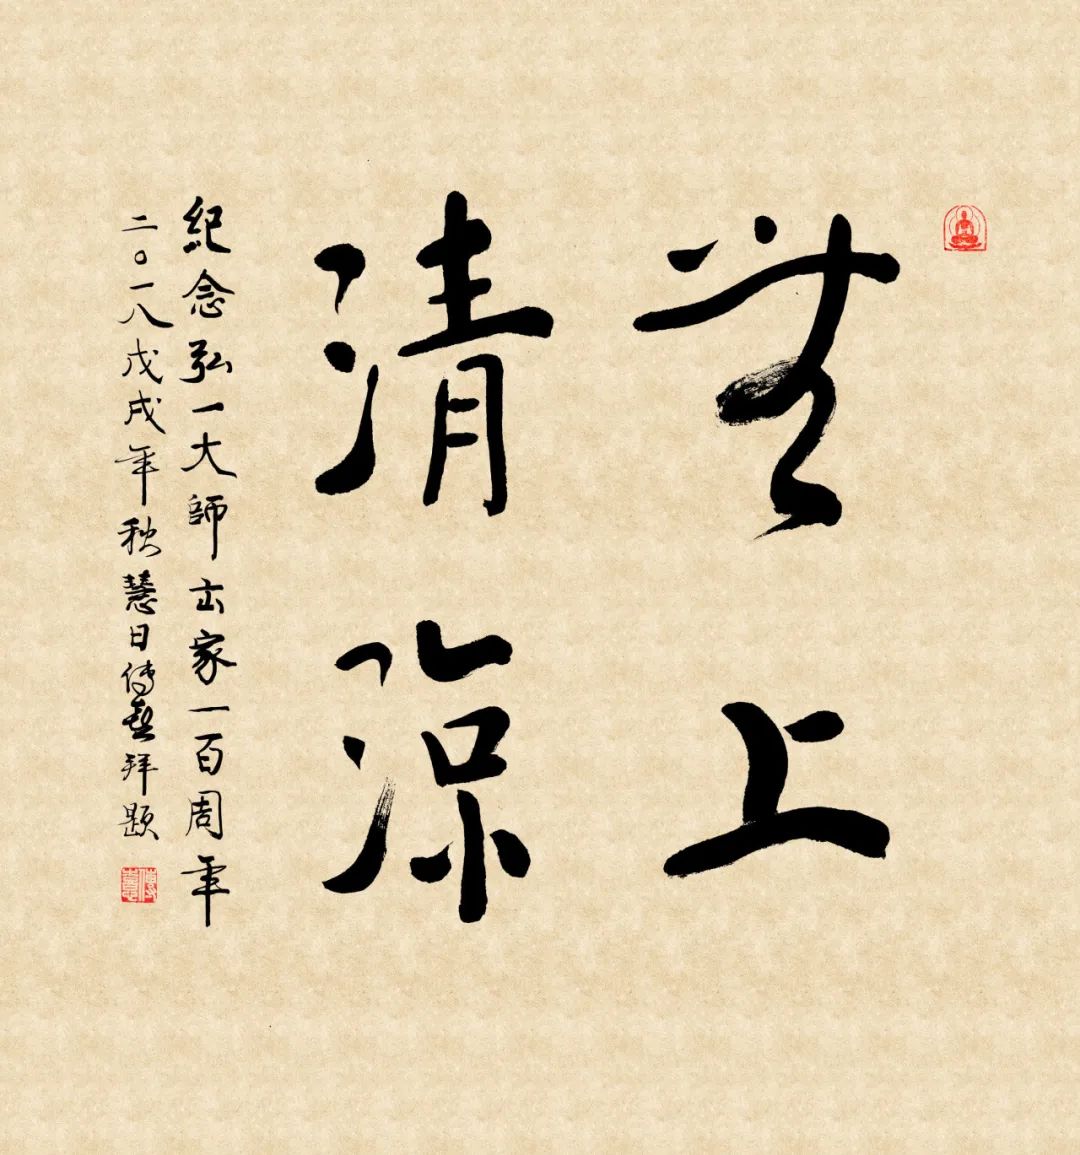 無上
清涼
紀念弘一大師出家一百周年
二〇一八戊戌年秋慧日傳喜拜題
傳喜